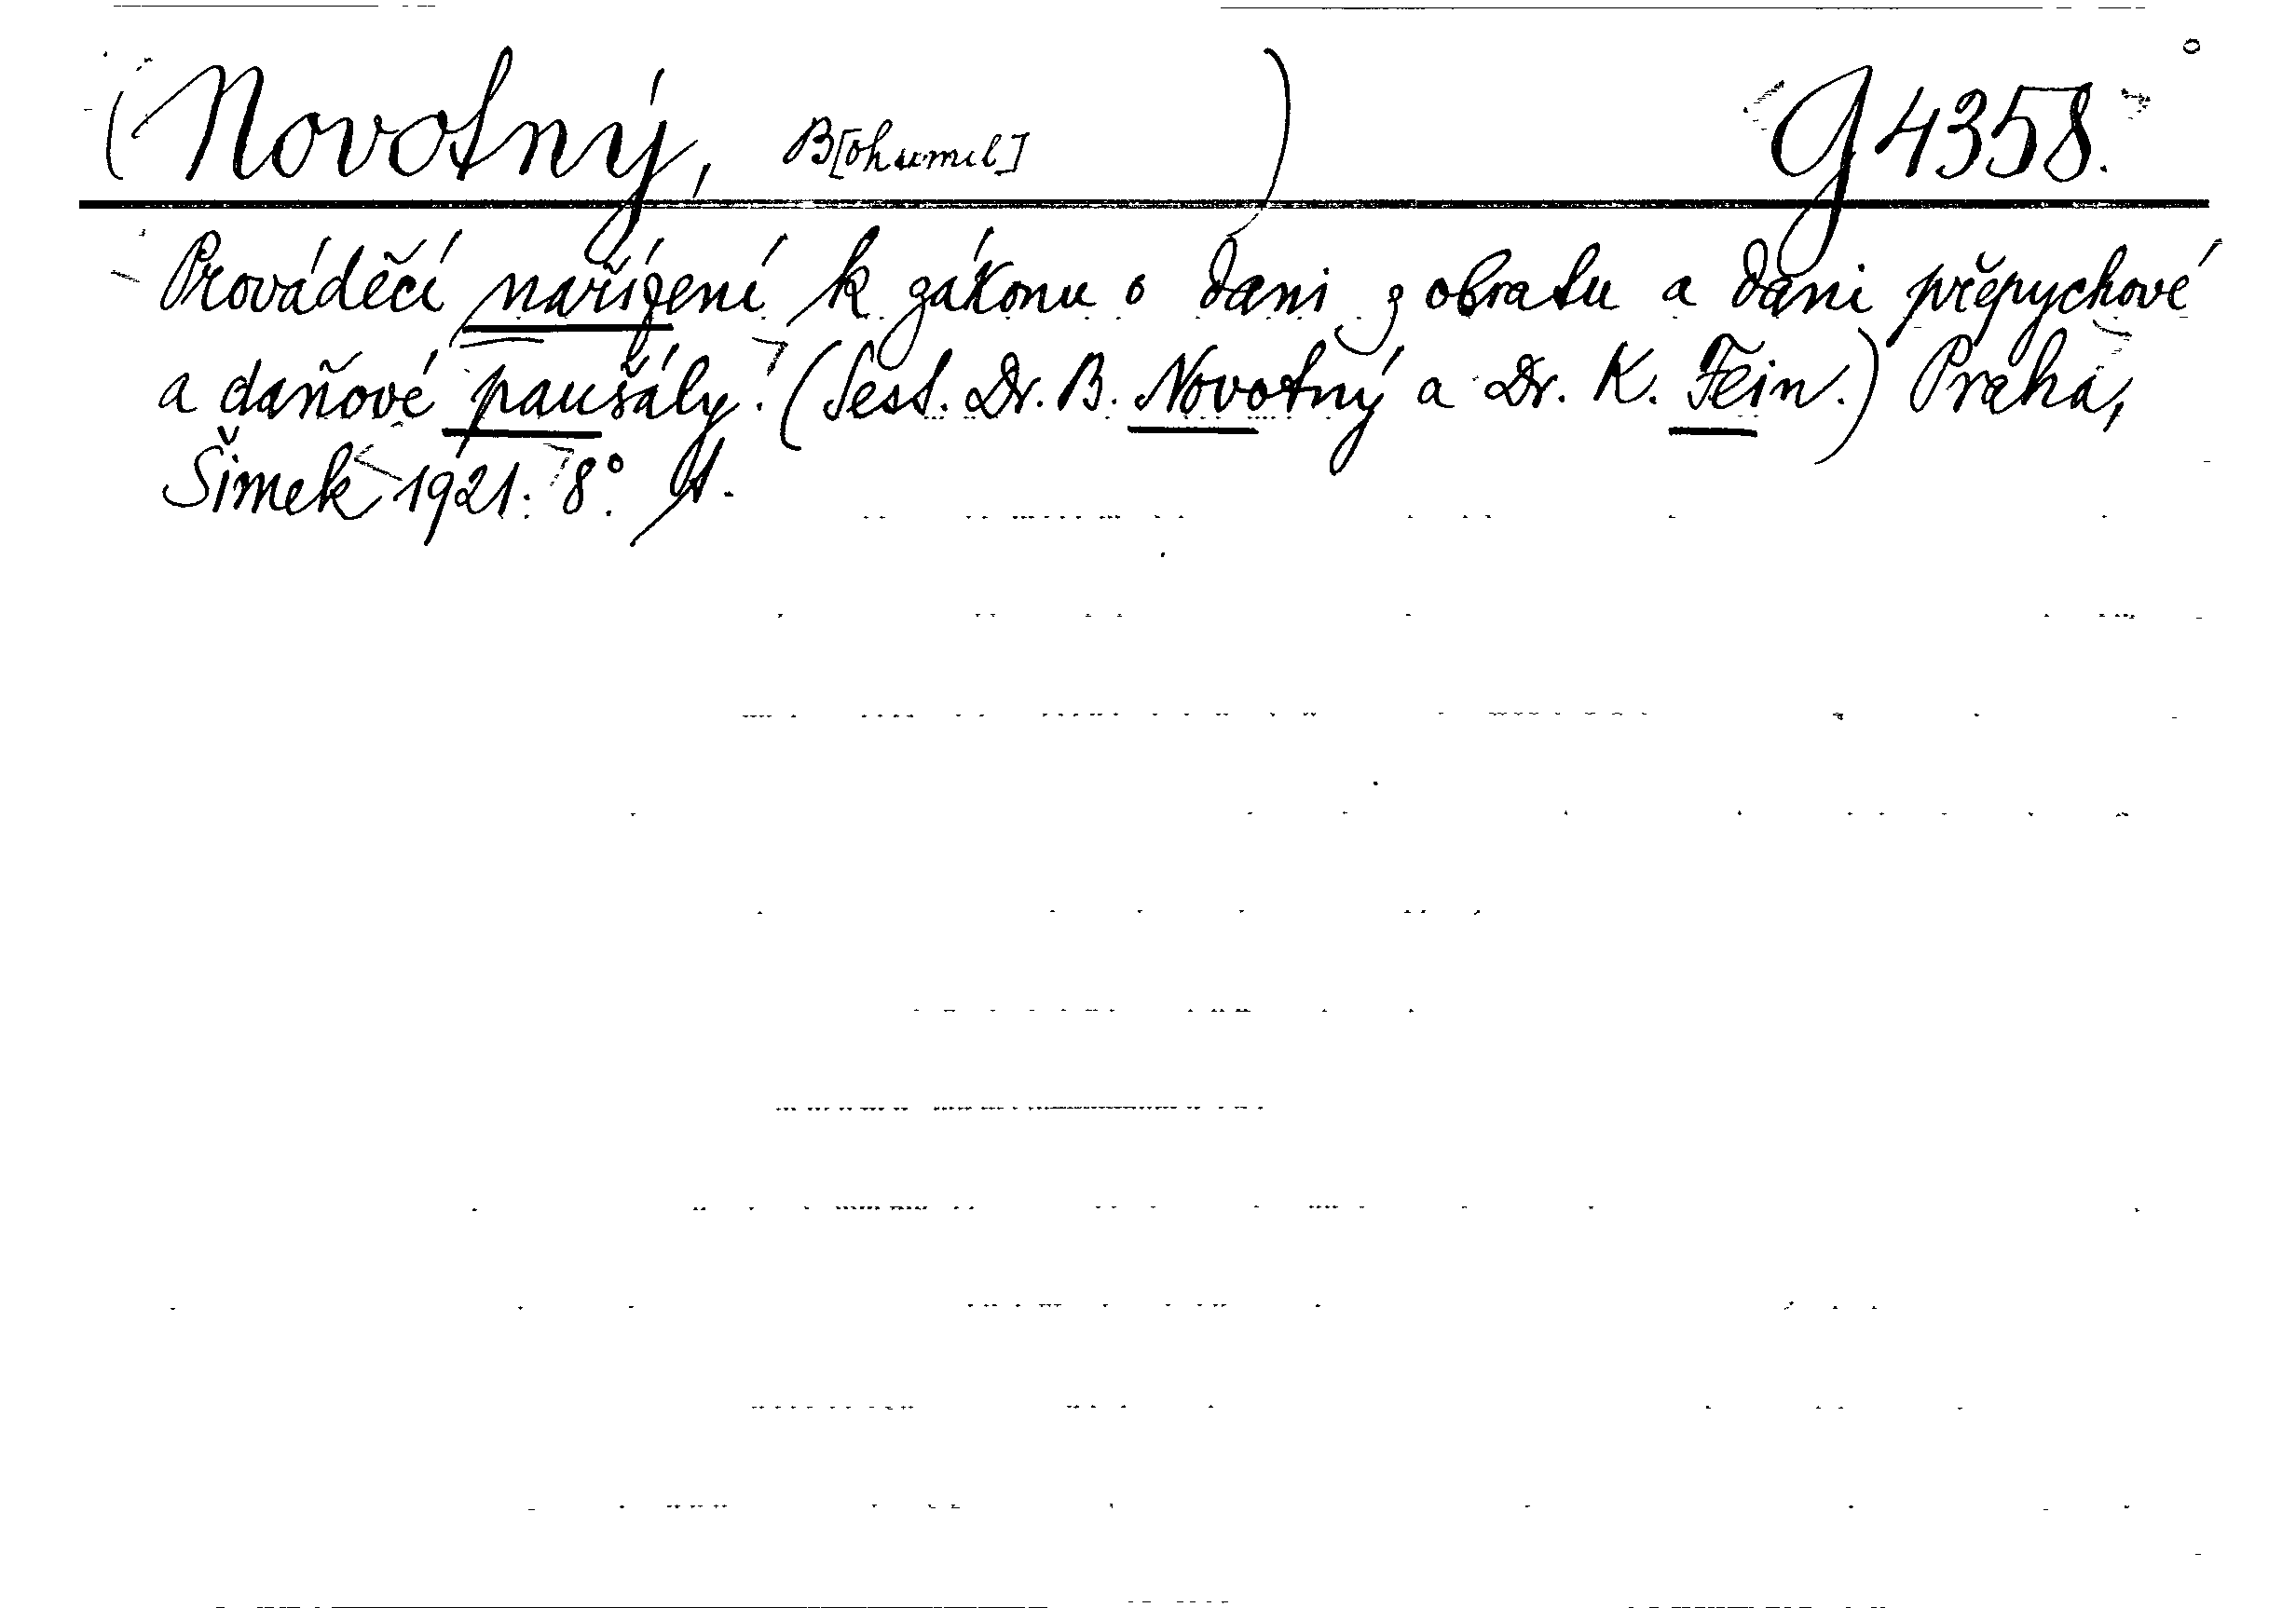 (Novotný, B[ohumil]) G 4358.
Prováděcí nařízení k zákonu o dani z obratu a dani přepychové
a daňové paušály. (Sest. Dr. B. Novotný a Dr. K. Fein.) Praha,
Šimek 1921. 8°.